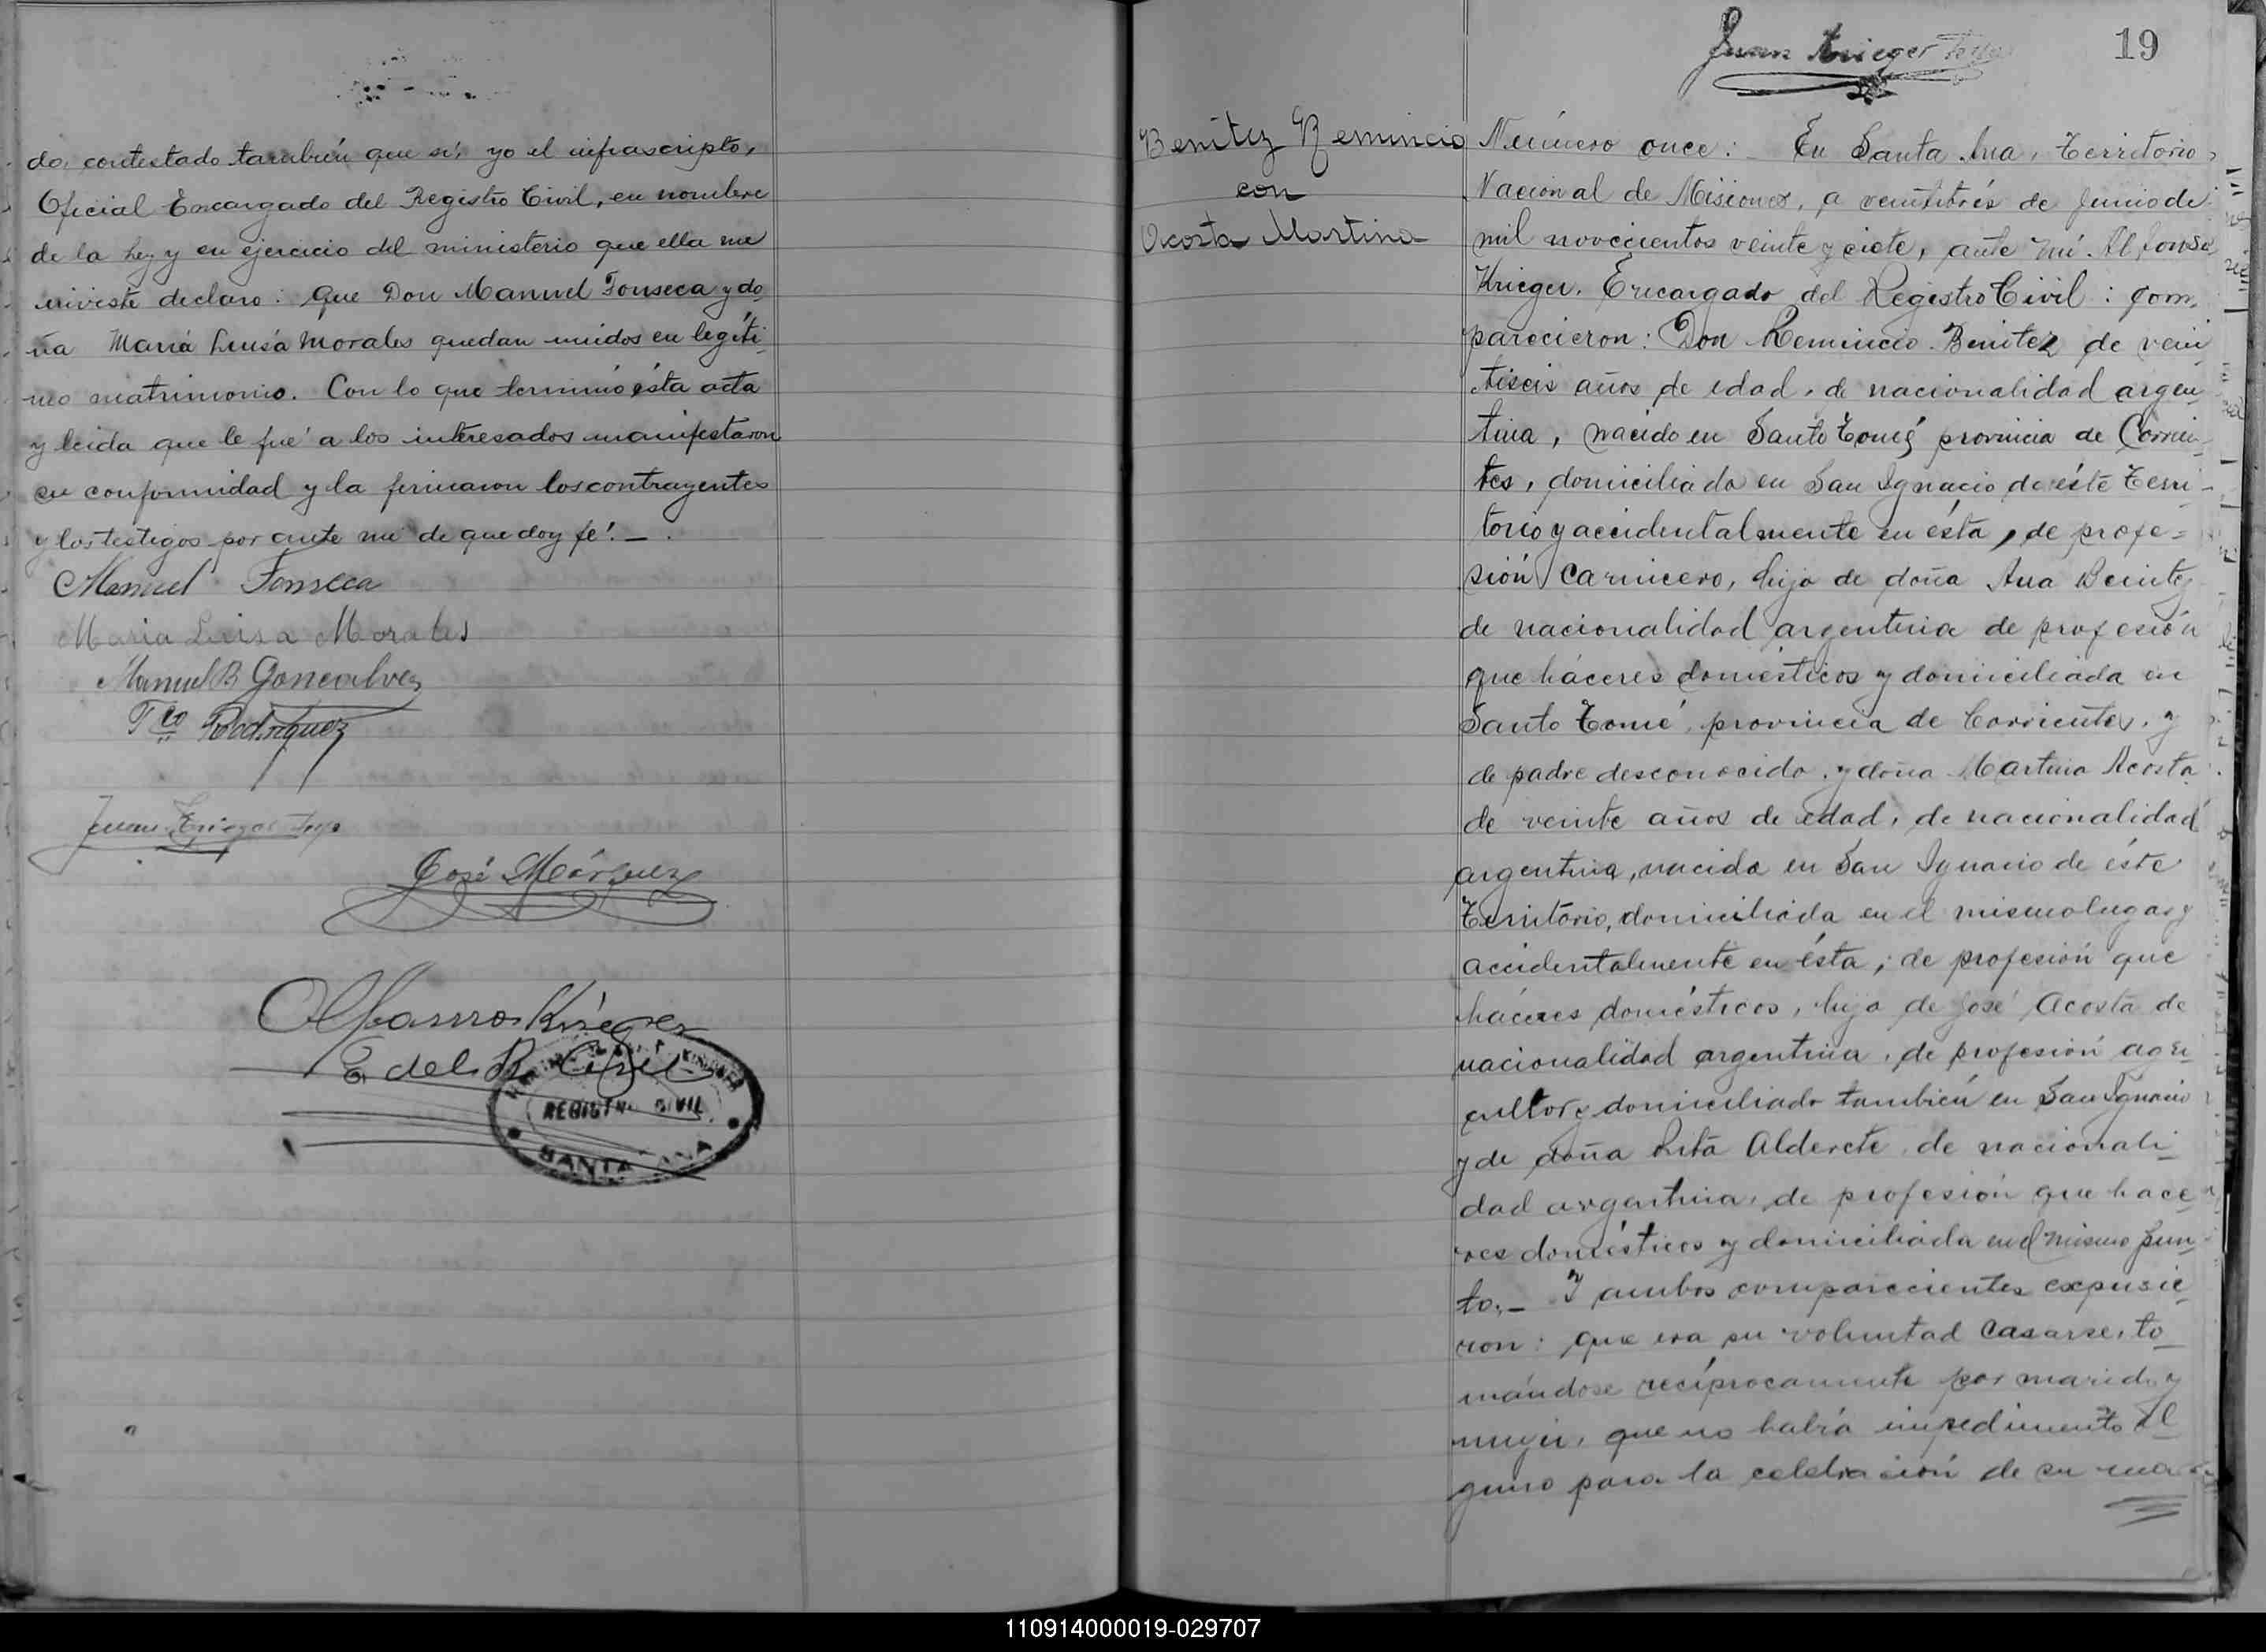 do, contestado también que sí, yo el infrascripto,
Oficial Encargado del Registro Civil, en nombre
de la Ley y en ejercicio del ministerio que ella me
inviste declaro: que Don Manuel Fonseca y do
ña María Luisa Morales quedan unidos en legíti-
mo matrimonio. Con lo que terminó ésta acta
y leida que le fué a los interesados manifestaron
su conformidad y la firmaron los contrayentes
y los testigos por ante mi de que doy fé. _
Manuel Fonseca
Maria Luisa Morales
Manuel B Goncalvez
Fco Rodriguez
Juan Krieger
José Márquez
Alfonso Krieger
E del R Civil
REGISTRO CIVIL
SANTA ANA
Juan Krieger
19
Benítez Remincio
con
Acosta Martina
Número once: _ En Santa Ana, Territorio
Nacional de Misiones, a veintitrés de Junio de
mil novecientos veinte y siete, ante mí Alfonso
Krieger, Encargado del Registro Civil: Com-
parecieron: Don Remincio Benitez de vein
tiseis años de edad, de nacionalidad argen
tina, nacido en Santo Tomé provincia de Corrien-
tes, domiciliado en San Ignacio de éste Terri-
torio y accidentalmente en ésta, de profe-
sión Carnicero, hijo de doña Ana Benitez
de nacionalidad argentina de profesión
que háceres domésticos y domiciliada en
Santo Tomé, provincia de Corrientes, y
de padre desconocido, y doña Martina Acosta
de veinte años de edad, de nacionalidad
argentina, nacida en San Ignacio de éste
Territorio, domiciliada en el mismo lugar y
accidentalmente en ésta, de profesión que
háceres domésticos, hija de José Acosta de
nacionalidad argentina, de profesión agri
cultor y domiciliado también en San Ignacio
y de doña Rita Alderete, de nacionali-
dad argentina, de profesión que hace-
res domésticos y domiciliada en el mismo pun-
to. _ Y ambos comparecientes expusie-
ron: que era su voluntad Casarse, to-
mándose recíprocamente por marido y
mujer, que no había impedimento al
guno para la celebración de su ma
110914000019-029707